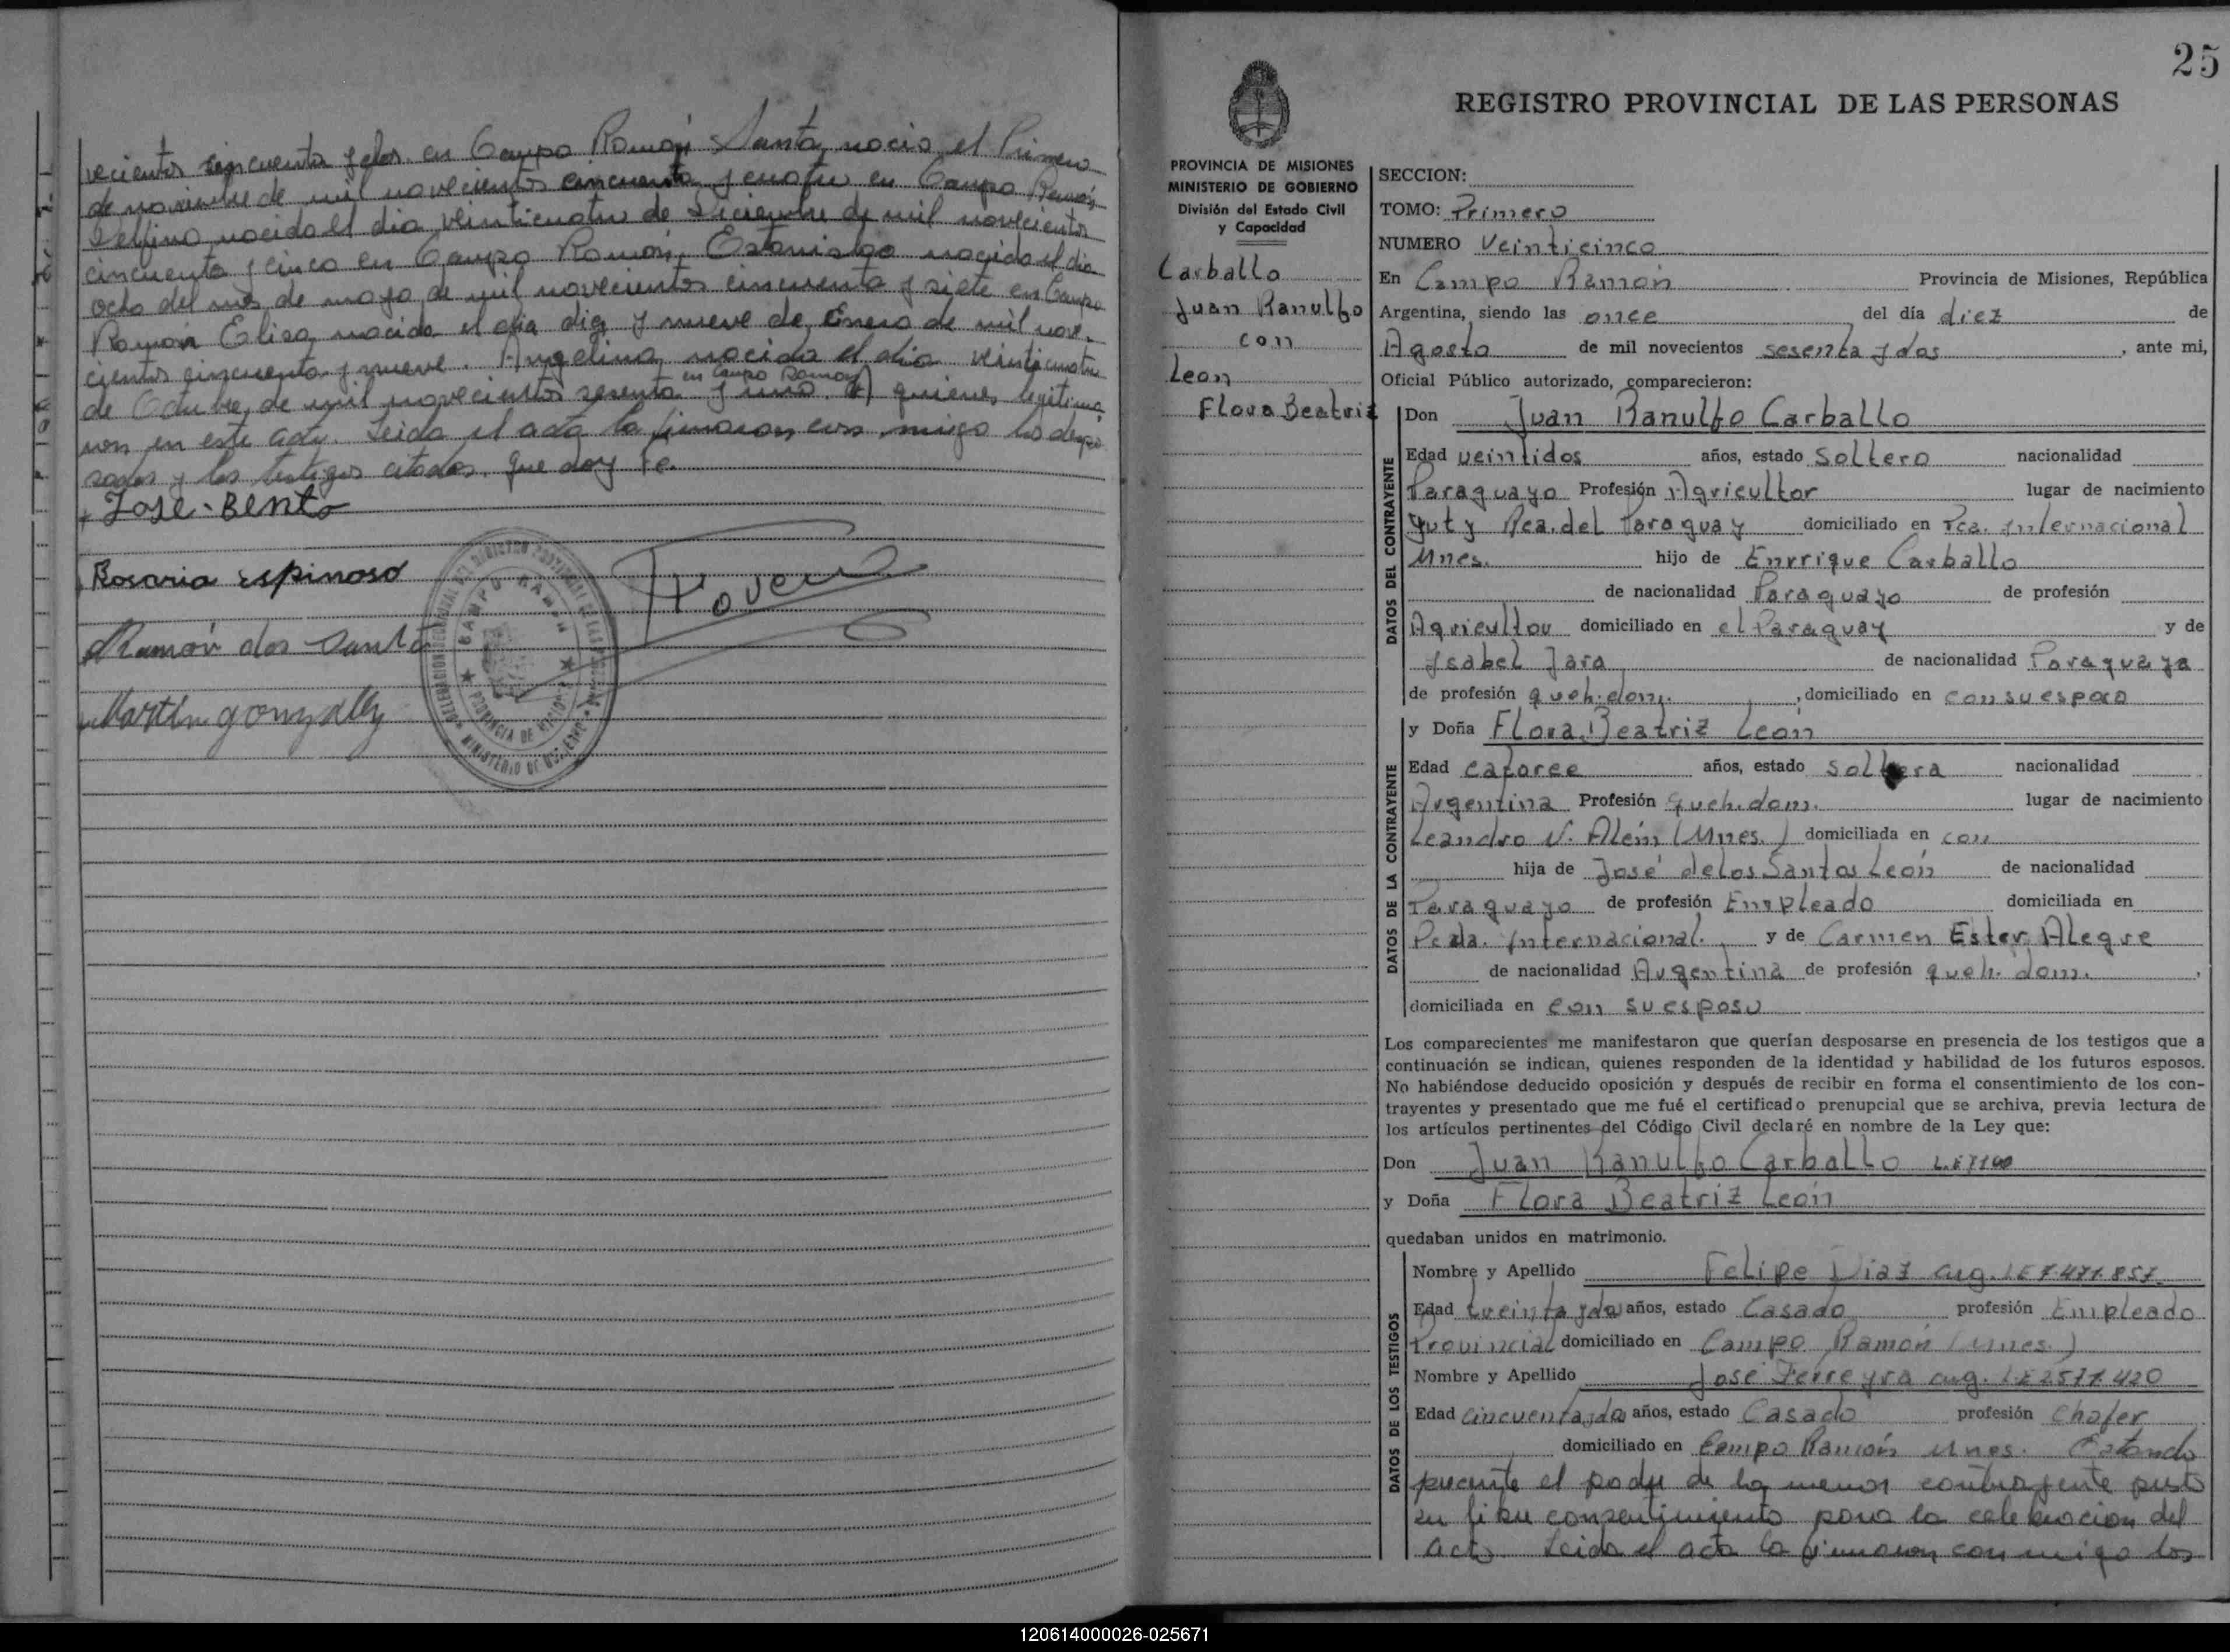 vecientos cincuenta y dos en Campo Ramón Santa, nacio el Primero
de noviembre de mil novecientos cincuenta y cuatro en Campo Ramón,
Delfino, nacido el dia veinticuatro de Diciembre de mil novecientos
cincuenta y cinco en Campo Ramón, Estanislao nacido el dia
ocho del mes de mayo de mil novecientos cincuenta y siete en Campo
Ramón Elisa, nacida el dia diez y nueve de Enero de mil nove-
cientos cincuenta y nueve. Angelina, nacida el dia veinticuatro
en Campo Ramon
de Octubre, de mil novecientos sesenta y uno, quienes legitima
ron en este acto. Leida el acta la firmaron con migo los despo
sados y los testigos citados. Que doy Fe.
Jose Bento
Rosaria Espinoso
Ramón dos Santo
Martin gonzalez
CAMPO RAMON
PROVINCIA DE MISIONES
MINISTERIO DE GOBIERNO
25
REGISTRO PROVINCIAL DE LAS PERSONAS
PROVINCIA DE MISIONES
MINISTERIO DE GOBIERNO
División del Estado Civil
y Capacidad
Carballo
Juan Ranulfo
con
Leon
Flora Beatriz
SECCION:
TOMO: Primero
NUMERO Veinticinco
En Campo Ramón Provincia de Misiones, República
Argentina, siendo las once del día diez de
Agosto de mil novecientos sesenta y dos, ante mi,
Oficial Público autorizado, comparecieron:
DATOS DEL CONTRAYENTE
Don Juan Ranulfo Carballo
Edad veintidos años, estado Soltero nacionalidad
Paraguayo Profesión Agricultor lugar de nacimiento
Yuty Rca. del Paraguay domiciliado en Pca. Internacional
Mnes. hijo de Enrrique Carballo
de nacionalidad Paraguayo de profesión
Agricultor domiciliado en el Paraguay y de
Isabel Jara de nacionalidad Paraguaya
de profesión queh. dom., domiciliado en con su espoo
DATOS DE LA CONTRAYENTE
y Doña Flora Beatriz León
Edad catorce años, estado soltera nacionalidad
Argentina Profesión queh. dom. lugar de nacimiento
Leandro N. Alem (Mnes.) domiciliada en con
hija de José de los Santos León de nacionalidad
Paraguayo de profesión Empleado domiciliada en
Pcada. Internacional. y de Carmen Ester Alegre
de nacionalidad Argentina de profesión queh. dom.,
domiciliada en con su esposo
Los comparecientes me manifestaron que querían desposarse en presencia de los testigos que a
continuación se indican, quienes responden de la identidad y habilidad de los futuros esposos.
No habiéndose deducido oposición y después de recibir en forma el consentimiento de los con-
trayentes y presentado que me fué el certificado prenupcial que se archiva, previa lectura de
los artículos pertinentes del Código Civil declaré en nombre de la Ley que:
Don Juan Ranulfo Carballo
y Doña Flora Beatriz León
quedaban unidos en matrimonio.
DATOS DE LOS TESTIGOS
Nombre y Apellido Felipe Diaz arg. LE 7.471.857
Edad treinta y dos años, estado Casado profesión Empleado
Provincial domiciliado en Campo Ramón (Mnes.)
Nombre y Apellido José Ferreyra arg. LE 2577.420
Edad cincuenta y dos años, estado Casado profesión Chofer
domiciliado en Campo Ramón Mnes. Estando
presente el padre de la menor contrayente presto
su libre consentimiento para la celebracion del
acto. Leida el acta la firmaron con migo los
120614000026-025671